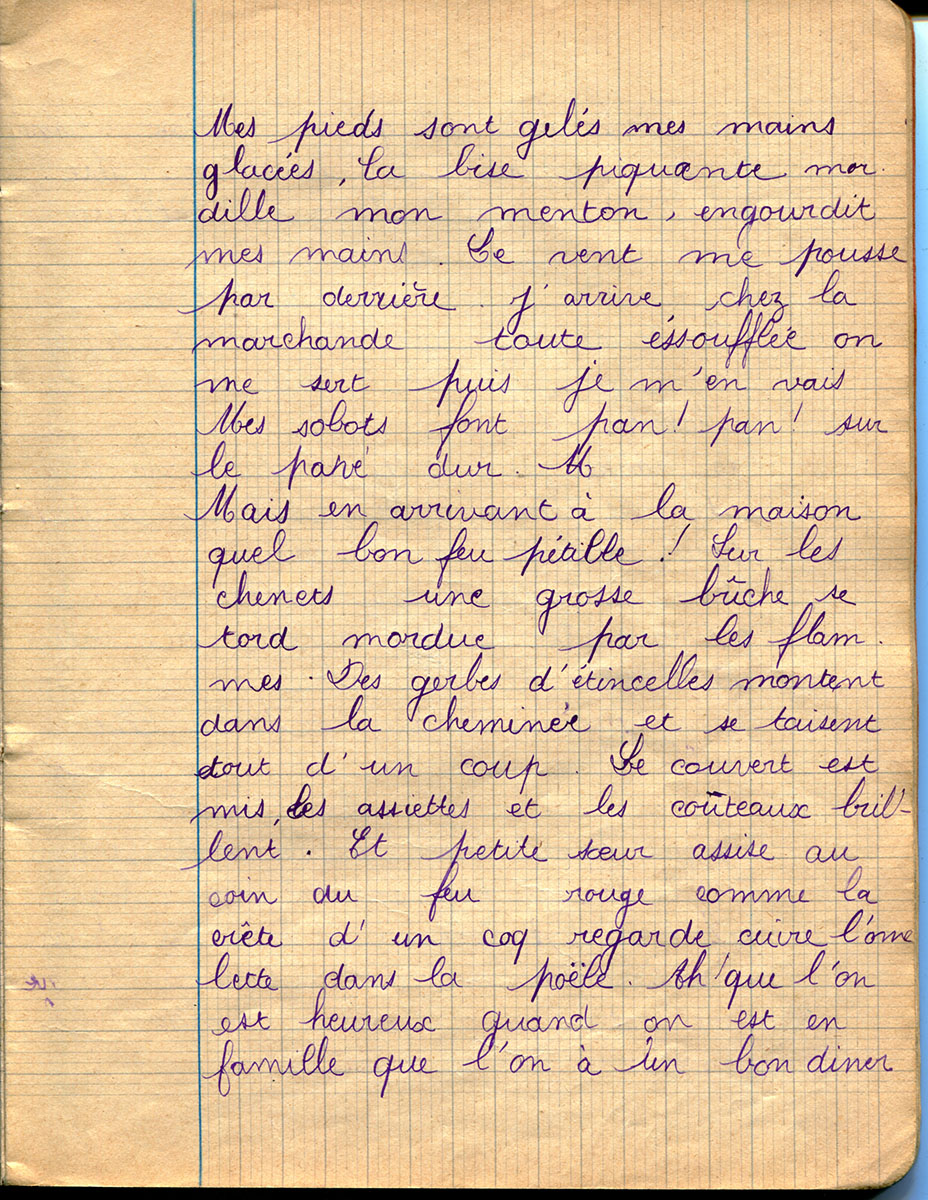 Mes pieds sont gelés mes mains
glacées, la bise piquante mor
dille mon menton, engourdit
mes mains. Le vent me pousse
par derrière. j'arrive chez la
marchande toute éssoufflée on
me sert puis je m'en vais
Mes sobots font pan! pan! sur
le pavé dur. M
Mais en arrivant à la maison
quel bon feu pétille! Sur les
chenets une grosse bûche se
tord mordue par les flam.
mes. Des gerbes d'étincelles montent
dans la cheminée et se taisent
tout d'un coup. Le couvert est
mis, les assiettes et les coûteaux bril-
lent. Et petite sœur assise au
coin du feu rouge comme la
crête d'un coq regarde cuire l'ome
lette dans la poële. Ah! que l'on
est heureux quand on est en
famille que l'on à un bon diner